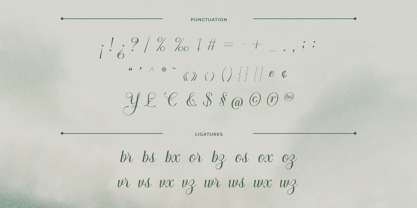 PUNCTUATION
¡ ! ¿ ? / % ‰ 1 # = - + _ . , : ;
“ ‘ ^ ° ~ «» ‹› () {} [] || e ¢
¥ £ € & $ § @ © ® ™
LIGATURES
br bs bx or bz os ox oz
vr vs vx vz wr ws wx wz